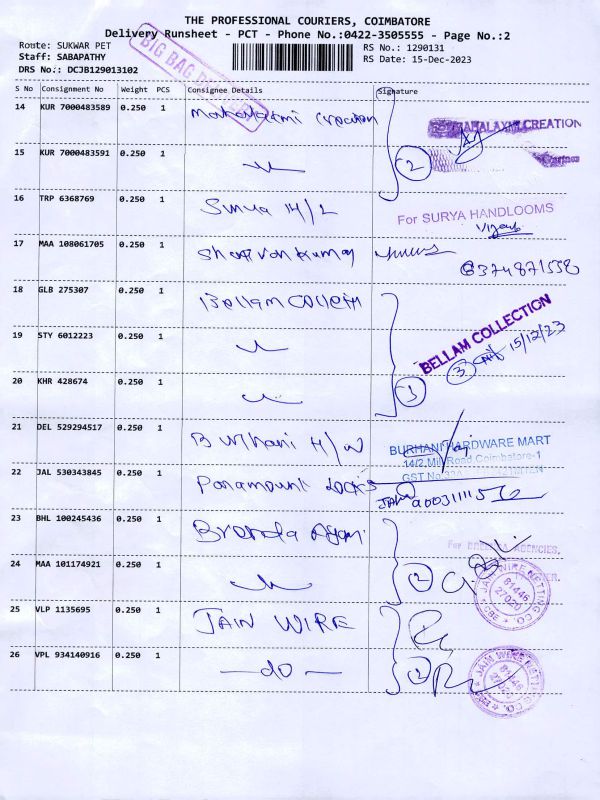 THE PROFESSIONAL COURIERS, COIMBATORE
Delivery Runsheet - PCT - Phone No.:0422-3505555 - Page No.:2
Route: SUKWAR PET
RS No.: 1290131
Staff: SABAPATHY
RS Date: 15-Dec-2023
DRS No.: DCJB129013102
BIG BAG
S No Consignment No Weight PCS Consignee Details Signature
14 KUR 7000483589 0.250 1 Mahalaxmi Creation
MAHALAXMI CREATION
15 KUR 7000483591 0.250 1 2
16 TRP 6368769 0.250 1 Surya H/L
For SURYA HANDLOOMS
17 MAA 108061705 0.250 1 Sharvan Kumar
18 GLB 275307 0.250 1 Bellam Collectn
BELLAM COLLECTION
19 STY 6012223 0.250 1 3 15/12/23
20 KHR 428674 0.250 1 3
21 DEL 529294517 0.250 1 Burhani H/W
BURHANI HARDWARE MART
14/2, Mill Road, Coimbatore-1
GST No.
22 JAL 530343845 0.250 1 Paramount Locks
23 BHL 100245436 0.250 1 Brenda Agenc
AGENCIES.
24 MAA 101174921 0.250 1 2
JAIN WIRE NETTING CO. CBE
81446
27020
25 VLP 1135695 0.250 1 JAIN WIRE
26 VPL 934140916 0.250 1 — do — 2
JAIN WIRE NETTING CO. CBE